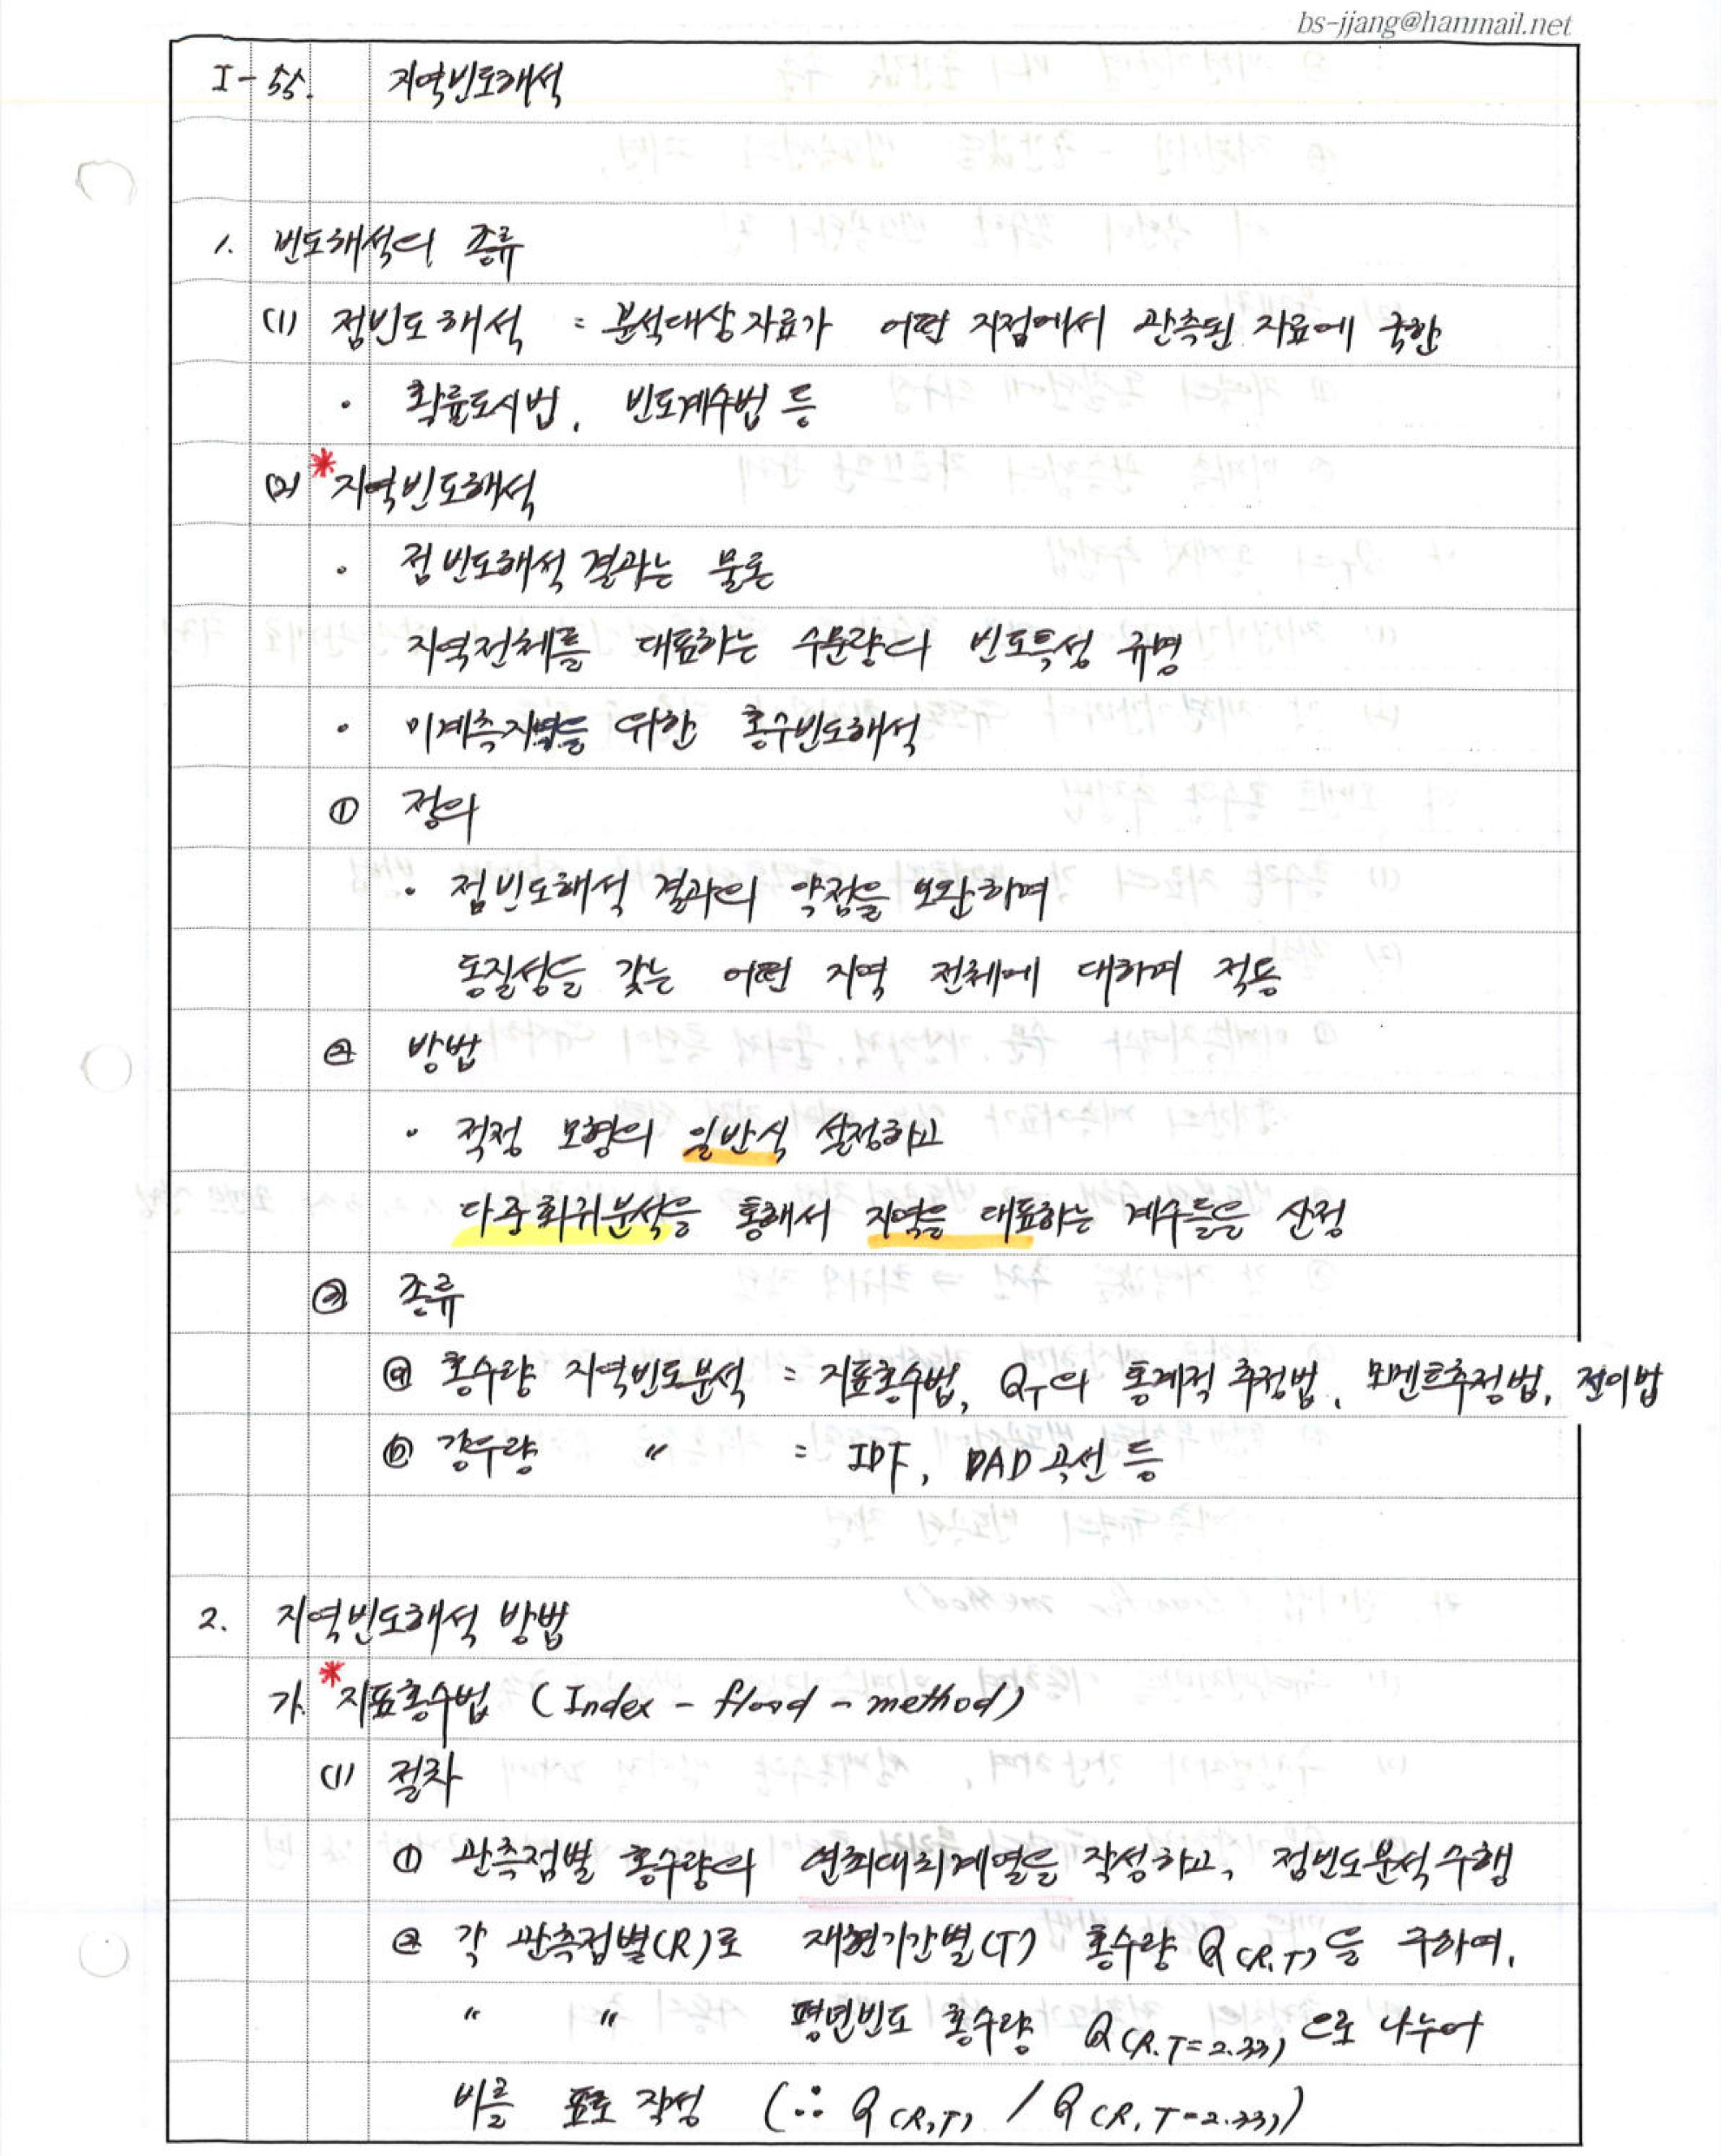 bs-jjang@hanmail.net
I-55. 지역빈도해석
1. 빈도해석의 종류
(1) 점빈도해석 = 분석대상자료가 어떤 지점에서 관측된 자료에 국한
· 확률도시법, 빈도계수법 등
(2) *지역빈도해석
· 점빈도해석 결과는 물론
지역전체를 대표하는 수문량의 빈도특성 규명
· 미계측지역을 위한 홍수빈도해석
① 정의
· 점빈도해석 결과의 약점을 보완하며
동질성을 갖는 어떤 지역 전체에 대하여 적용
② 방법
· 적정 모형의 일반식 설정하고
다중회귀분석을 통해서 지역을 대표하는 계수들을 산정
③ 종류
ⓐ 홍수량 지역빈도분석 = 지표홍수법, QT의 통계적 추정법, 모멘트추정법, 전이법
ⓑ 강우량 〃 = IDF, DAD곡선 등
2. 지역빈도해석 방법
가. *지표홍수법 (Index - flood - method)
(1) 절차
① 관측점별 홍수량의 연최대치계열을 작성하고, 점빈도분석 수행
② 각 관측점별(R)로 재현기간별(T) 홍수량 Q(R,T)을 구하여,
〃 〃 평년빈도 홍수량 Q(R.T=2.33)으로 나누어
비를 표로 작성 (∴ Q(R,T) / Q(R, T=2.33))